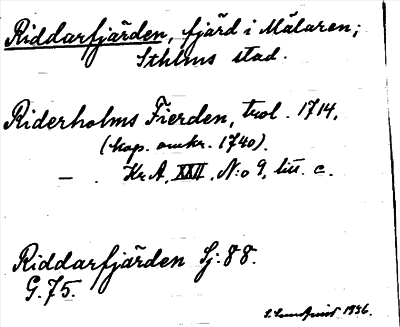 Riddarfjärden, fjärd i Mälaren;
Sthlms stad.
Riderholms Fierden, trol. 1714,
(kop. omkr. 1740).
— . Kr A, XXII, N:o 9, litt. c.
Riddarfjärden Sj: 88.
G. 75.
S. Lundqvist 1936.